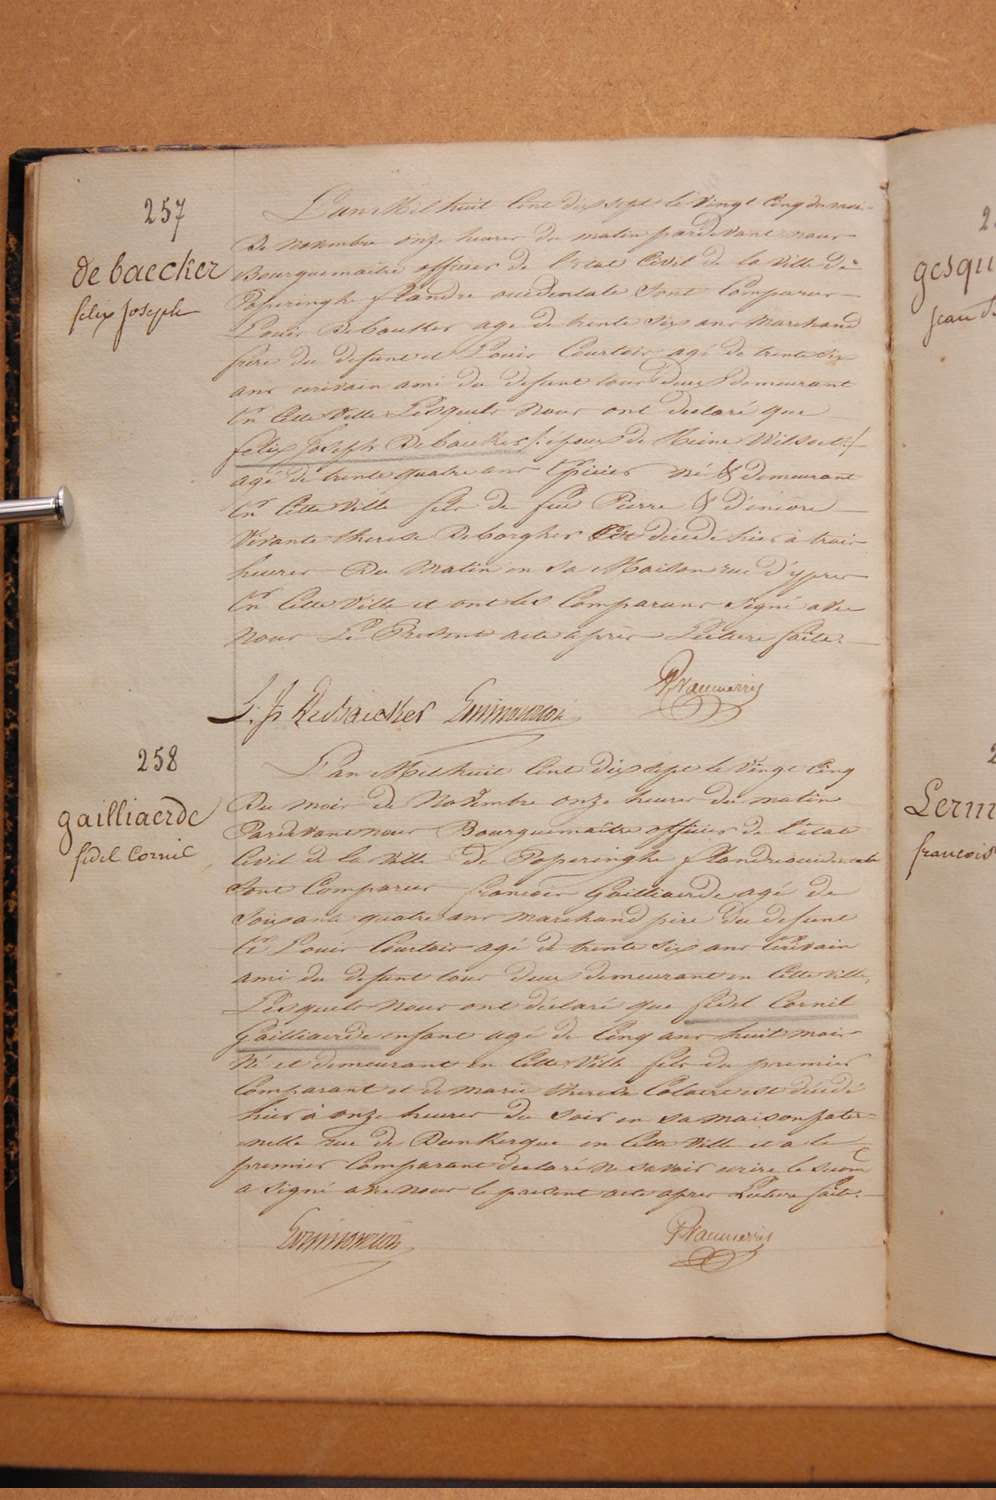 257
de baecker
felix Joseph
L'an Mil huit Cent dix sept le Vingt Cinq du mois
De novembre onze heures du matin pardevant nous
Bourguemaitre officier de l'etat Civil de la Ville de
Poperinghe flandre occidentale Sont Comparus
Louis Debaecker age de trente Six ans Marchand
frere du defunt et Louis Courtois agé de trente Six
ans ecrivain ami du defunt tous deux demeurant
En Cette Ville Lesquels nous ont declaré que
felix Joseph Debaecker /: epoux de Reine Wilsoet :/
agé de trente quatre ans Epicier né & demeurant
En Cette Ville fils de feu Pierre & d'encore
Vivante therese Deborgher Est décédé hier à trois
heures Du Matin en sa Maison rue d'ypres
En Cette Ville et ont les Comparans Signé avec
nous Le Present acte après Lecture faite.
L: J: Debaecker
258
gailliaerde
fidel Cornil
L'an Mil huit Cent dix sept le Vingt Cinq
Du mois de Novembre onze heures du matin
Pardevant nous Bourguemaître officier de l'état
Civil de la Ville De Poperinghe flandre occidentale
Sont Comparus francois Gailliaerde agé de
Soixante quatre ans marchand père du defunt
Et Louis Courtois agé de trente Six ans Ecrivain
ami du defunt tous deux demeurant en Cette Ville,
Lesquels nous ont déclaré que fidel Cornil
Gailliaerde enfant agé de Cinq ans huit mois
Né et demeurant en Cette Ville fils du premier
Comparant et de marie therese est décédé
hier à onze heures du Soir en sa maison pater-
nelle rue de Dunkerque en Cette Ville et a le
premier Comparant declaré ne savoir ecrire le Second
a Signé avec nous le présent acte apres Lecture faite.
gesqu
jean
Lerm
francois